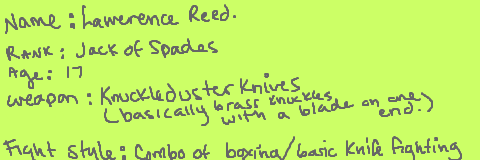 Name: Lawerence Reed.
RANK: Jack of Spades
Age: 17
weapon: Knuckleduster Knives
(basically brass knuckles
with a blade on one
end.)
Fight style: Combo of boxing/basic Knife fighting